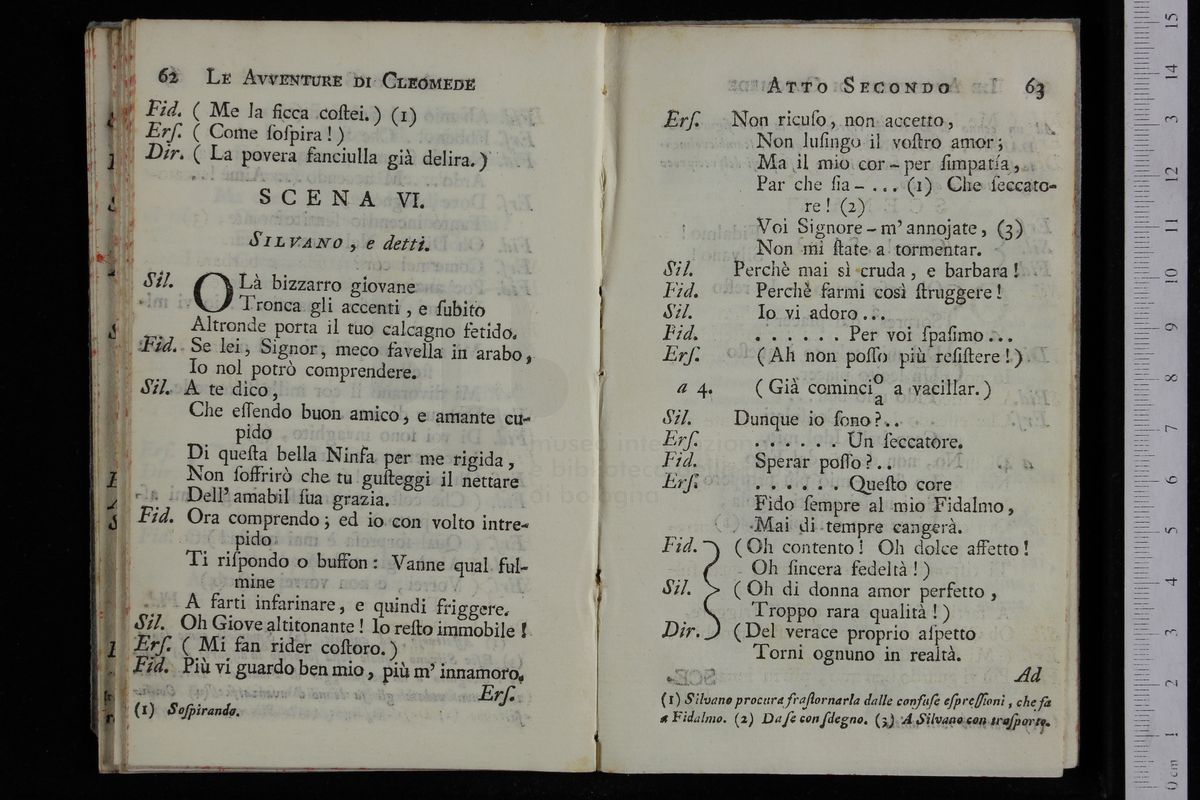 62 LE AVVENTURE DI CLEOMEDE
Fid. ( Me la ficca coſtei. ) (1)
Erſ. ( Come ſoſpira ! )
Dir. ( La povera fanciulla già delira. )
SCENA VI.
SILVANO, e detti.
Sil. OLà bizzarro giovane
Tronca gli accenti, e ſubito
Altronde porta il tuo calcagno fetido.
Fid. Se lei, Signor, meco favella in arabo,
Io nol potrò comprendere.
Sil. A te dico,
Che eſſendo buon amico, e amante cu-
pido
Di queſta bella Ninfa per me rigida,
Non ſoffrirò che tu guſteggi il nettare
Dell' amabil ſua grazia.
Fid. Ora comprendo; ed io con volto intre-
pido
Ti riſpondo o buffon: Vanne qual ful-
mine
A farti infarinare, e quindi friggere.
Sil. Oh Giove altitonante! Io reſto immobile!
Erſ. ( Mi fan rider coſtoro. )
Fid. Più vi guardo ben mio, più m' innamoro.
Erſ.
(1) Soſpirando.
ATTO SECONDO 63
Erſ. Non ricuſo, non accetto,
Non luſingo il voſtro amor;
Ma il mio cor - per ſimpatía,
Par che ſia - ... (1) Che ſeccato-
re! (2)
Voi Signore - m' annojate, (3)
Non mi ſtate a tormentar.
Sil. Perchè mai sì cruda, e barbara!
Fid. Perchè farmi così ſtruggere!
Sil. Io vi adoro...
Fid. ...... Per voi ſpaſimo...
Erſ. (Ah non poſſo più reſiſtere!)
a 4. (Già cominci o/a a vacillar.)
Sil. Dunque io ſono?..
Erſ. ...... Un ſeccatore.
Fid. Sperar poſſo?..
Erſ. ...... Queſto core
Fido ſempre al mio Fidalmo,
Mai di tempre cangerà.
Fid. (Oh contento! Oh dolce affetto!
Oh ſincera fedeltà!)
Sil. (Oh di donna amor perfetto,
Troppo rara qualità!)
Dir. (Del verace proprio aſpetto
Torni ognuno in realtà.
Ad
(1) Silvano procura fraſtornarla dalle confuſe eſpreſſioni, che fa
a Fidalmo. (2) Da ſe con ſdegno. (3) A Silvano con traſporto.